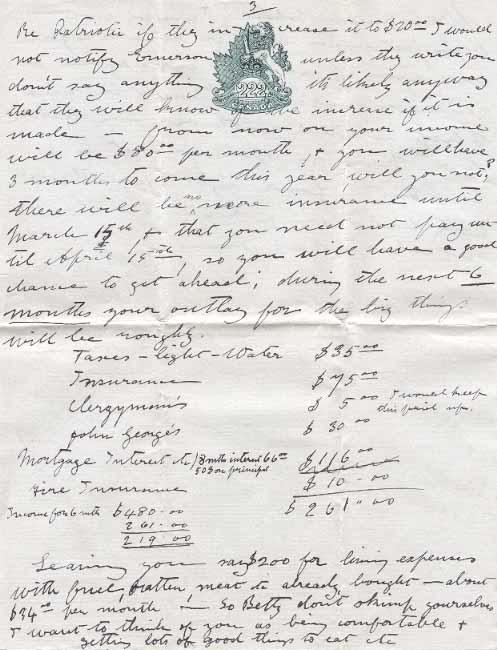 3
Re Patriotic if they increase it to $20.00 I would
not notify Emerson unless they write you
don't say anything its likely anyway
that they will know if the increase if it is
made — from now on your income
will be $80.00 per month, & you will have
3 months to come this year will you not?
there will be no more insurance until
March 15th, & that you need not pay un-
til April 15th, so you will have a good
chance to get ahead; during the next 6
months your outlay for the big things
will be roughly.
222
CANADA
Taxes - light - Water $35.00
Insurance $75.00
Clergyman's $ 5.00 I would keep
this paid up.
John George's $ 30.00
Mortgage Interest &c / 8 mths interest 66.00
50.00 on principal $116.00
Fire Insurance $ 10.00
$ 261.00
Income for 6 mth $480.00
261.00
219.00
Leaving you say $200 for living expenses
with fuel, butter, meat &c already bought — about
$34.00 per month — So Betty don't skimp yourselves
I want to think of you as being comfortable &
getting lots of good things to eat etc